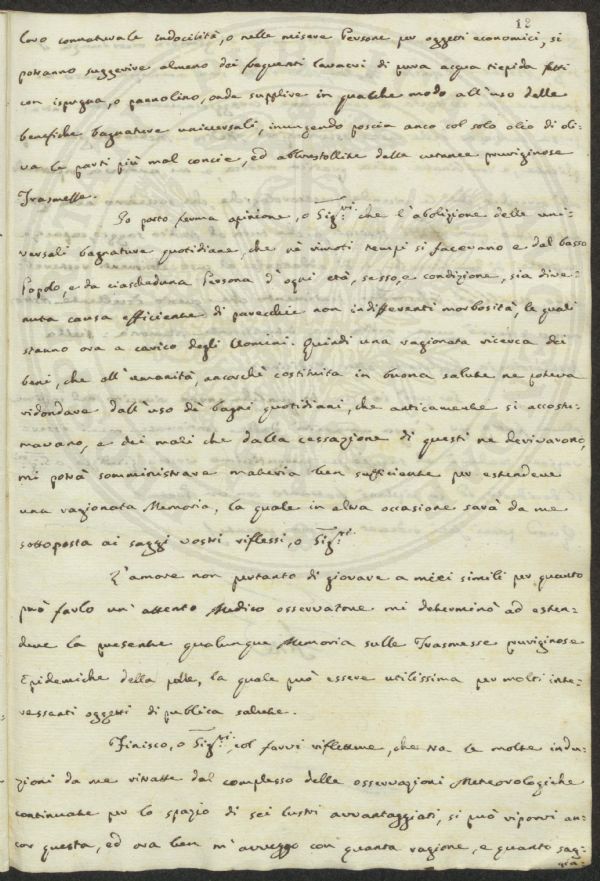 12
loro connaturale indocilità, o nelle misere Persone per oggetti economici, si
potranno suggerire almeno dei frequenti lavacri di pura acqua tiepida fatti
con ispugna, o pannolino, onde supplire in qualche modo all'uso delle
benefiche bagnature universali, inungendo poscia anco col solo olio di oli-
va le parti più mal concie, ed abbrostollite dalla cutanea pruriginose
Trasmesse.
Io porto ferma opinione, o Sig:ri che l'abolizione delle uni-
versali bagnature quotidiane, che ne' rimoti tempi si facevano e dal basso
Popolo, e da ciascheduna Persona d'ogni età, sesso, e condizione, sia dive-
nuta causa efficiente di parecchie non indifferenti morbosità, le quali
stanno ora a carico degli Uomini. Quindi una ragionata ricerca dei
beni, che all'umanità, ancorchè costituita in buona salute ne poteva
ridondare dall'uso de' bagni quotidiani, che anticamente si accostu-
mavano, e dei mali che dalla cessazione di questi ne derivarono,
mi potrà somministrare materia ben sufficiente per estendere
una ragionata Memoria, la quale in altra occasione sarà da me
sottoposta ai saggi vostri riflessi, o Sig:ri.
L'amore non pertanto di giovare a' miei simili per quanto
può farlo un' attento Medico osservatore mi determinò ad esten-
dere la presente qualunque Memoria sulle Trasmesse pruriginose
Epidemiche della pelle, la quale può essere utilissima per molti inte-
ressanti oggetti di publica salute.
Finisco, o Sig:ri, col farvi riflettere, che tra le molte indu-
zioni da me ritratte dal complesso delle osservazioni Meteorologiche
continuate per lo spazio di sei lustri avvantaggiati, si può riporvi an-
cor questa, ed ora ben m'avveggo con quanta ragione, e quanto sag-
gia-